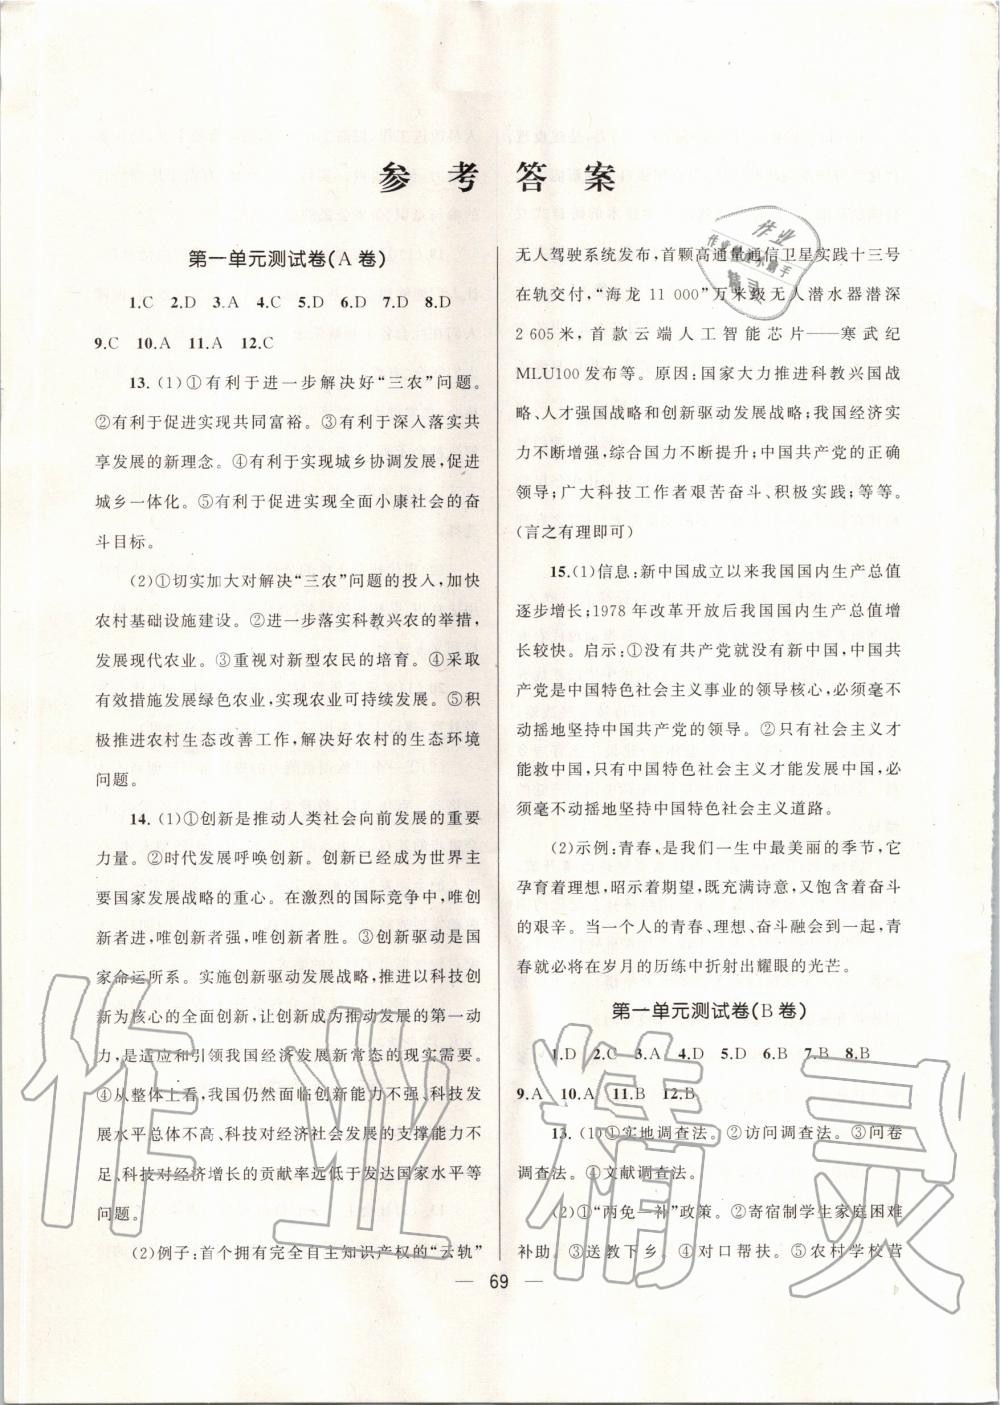 参考答案
第一单元测试卷(A卷)
1.C 2.D 3.A 4.C 5.D 6.D 7.D 8.D
9.C 10.A 11.A 12.C
13.(1)①有利于进一步解决好“三农”问题。
②有利于促进实现共同富裕。③有利于深入落实共
享发展的新理念。④有利于实现城乡协调发展,促进
城乡一体化。⑤有利于促进实现全面小康社会的奋
斗目标。
(2)①切实加大对解决“三农”问题的投入,加快
农村基础设施建设。②加大落实科教兴农的举措,
发展现代农业。③重视对新型农民的培育。④采取
有效措施发展绿色农业,实现农业可持续发展。⑤积
极推进农村生态改善工作,解决好农村的生态环境
问题。
14.(1)①创新是推动人类社会向前发展的重要
力量。②时代发展呼唤创新。创新已经成为世界主
要国家发展战略的重心。在激烈的国际竞争中,唯创
新者进,唯创新者强,唯创新者胜。③创新驱动是国
家命运所系。实施创新驱动发展战略,推进以科技创
新为核心的全面创新,让创新成为推动发展的第一动
力,是适应和引领我国经济发展新常态的现实需要。
④从整体上看,我国仍然面临创新能力不强,科技发
展水平总体不高,科技对经济社会发展的支撑能力不
足,科技对经济增长的贡献率远低于发达国家水平等
问题。
(2)例子:首个拥有完全自主知识产权的“云轨”
无人驾驶系统发布,首颗高通量通信卫星实践十三号
在轨交付,“海龙11 000”万米级无人潜水器潜深
2 605米,首款云端人工智能芯片——寒武纪
MLU100发布等。原因:国家大力推进科教兴国战
略、人才强国战略和创新驱动发展战略;我国经济实
力不断增强,综合国力不断提升;中国共产党的正确
领导;广大科技工作者艰苦奋斗、积极实践;等等。
(言之有理即可)
15.(1)信息:新中国成立以来我国国内生产总值
逐步增长;1978年改革开放后我国国内生产总值增
长较快。启示:①没有共产党就没有新中国,中国共
产党是中国特色社会主义事业的领导核心,必须毫不
动摇地坚持中国共产党的领导。②只有社会主义才
能救中国,只有中国特色社会主义才能发展中国,必
须毫不动摇地坚持中国特色社会主义道路。
(2)示例:青春,是我们一生中最美丽的季节,它
孕育着理想,昭示着期望,既充满诗意,又饱含着奋斗
的艰辛。当一个人的青春、理想、奋斗融会到一起,青
春就必将在岁月的历练中折射出耀眼的光芒。
第一单元测试卷(B卷)
1.D 2.C 3.A 4.D 5.D 6.B 7.B 8.B
9.A 10.A 11.B 12.B
13.(1)①实地调查法。②访问调查法。③问卷
调查法。④文献调查法。
(2)①“两免一补”政策。②寄宿制学生家庭困难
补助。③送教下乡。④对口帮扶。⑤农村学校营
— 69 —
作业精灵